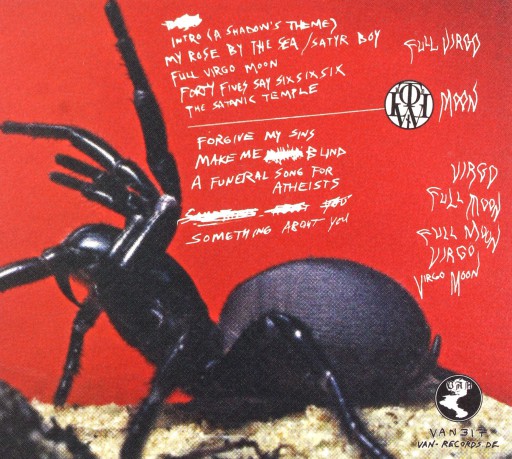 INTRO (A SHADOW'S THEME)
MY ROSE BY THE SEA / SATYR BOY
FULL VIRGO MOON
FORTY FIVES SAY SIXSIXSIX
THE SATANIC TEMPLE
FORGIVE MY SINS
MAKE ME BLIND
A FUNERAL SONG FOR
ATHEISTS
SOMETHING ABOUT YOU
FULL VIRGO
MOON
VIRGO
FULL MOON
FULL MOON
VIRGO
VIRGO MOON
VAN317
VAN-RECORDS.DE